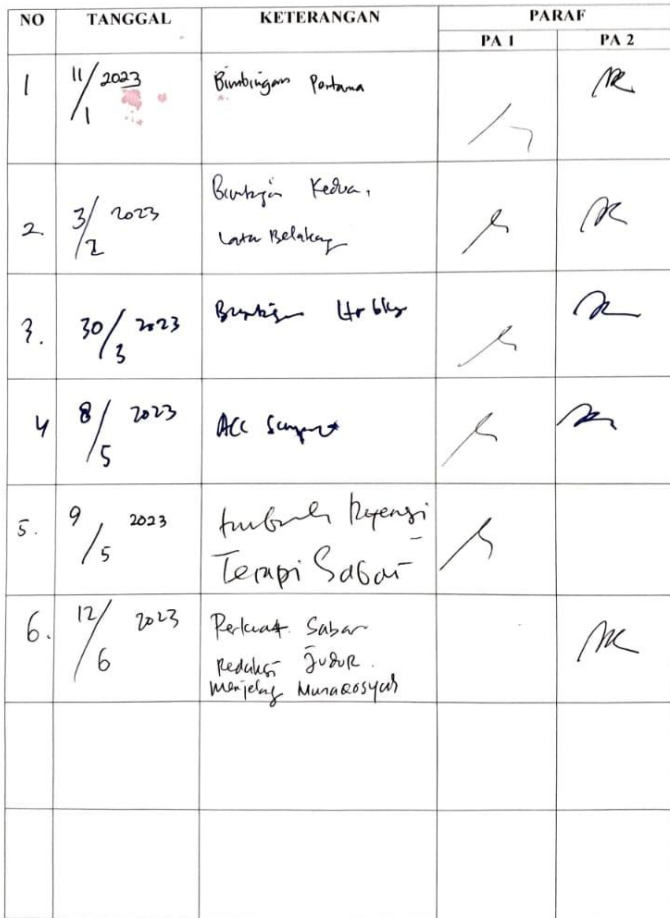 NO TANGGAL KETERANGAN PARAF
PA 1 PA 2
1 11/1 2023 Bimbingan Pertama
2. 3/2 2023 Bimbingan Kedua,
Latar Belakang
3. 30/3 2023 Bimbingan
4 8/5 2023 ACC Sempro
5. 9/5 2023 Referensi
Terapi Sabar
6. 12/6 2023 Perkuat Sabar
Redaksi
Menjelang Munaqosyah